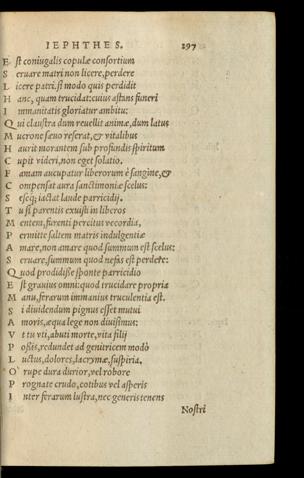 IEPHTHES. 297
Est coniugalis copulæ consortium
Seruare matri non licere, perdere
Licere patri. si modo quis perdidit
Hanc, quam trucidat: cuius astans funeri
Immanitatis gloriatur ambitu:
Qui claustra dum reuellit animæ, dum latus
Mucrone sæuo reserat, & vitalibus
Haurit morantem sub profundis spiritum
Cupit videri, non eget solatio.
Famam aucupatur liberorum è sangine, &
Compensat aura sanctimoniæ scelus:
Seseq; iactat laude parricidij.
Tu si parentis exuisti in liberos
Mentem, furenti percitus vecordia,
Permitte saltem matris indulgentiæ
Amare, non amare quod summum est scelus:
Seruare, summum quod nefas est perdere:
Quod prodidisse sponte parricidio
Est grauius omni: quod trucidare propria
Manu, ferarum immanius truculentia est.
Si diuidendum pignus esset mutui
Amoris, æqua lege non diuisimus:
Vt tu vti, abuti morte, vita filij
Possis, redundet ad genitricem modò
Luctus, dolores, lacrymæ, suspiria.
O rupe dura durior, vel robore
Prognate crudo, cotibus vel asperis
Inter ferarum lustra, nec generis tenens
Nostri